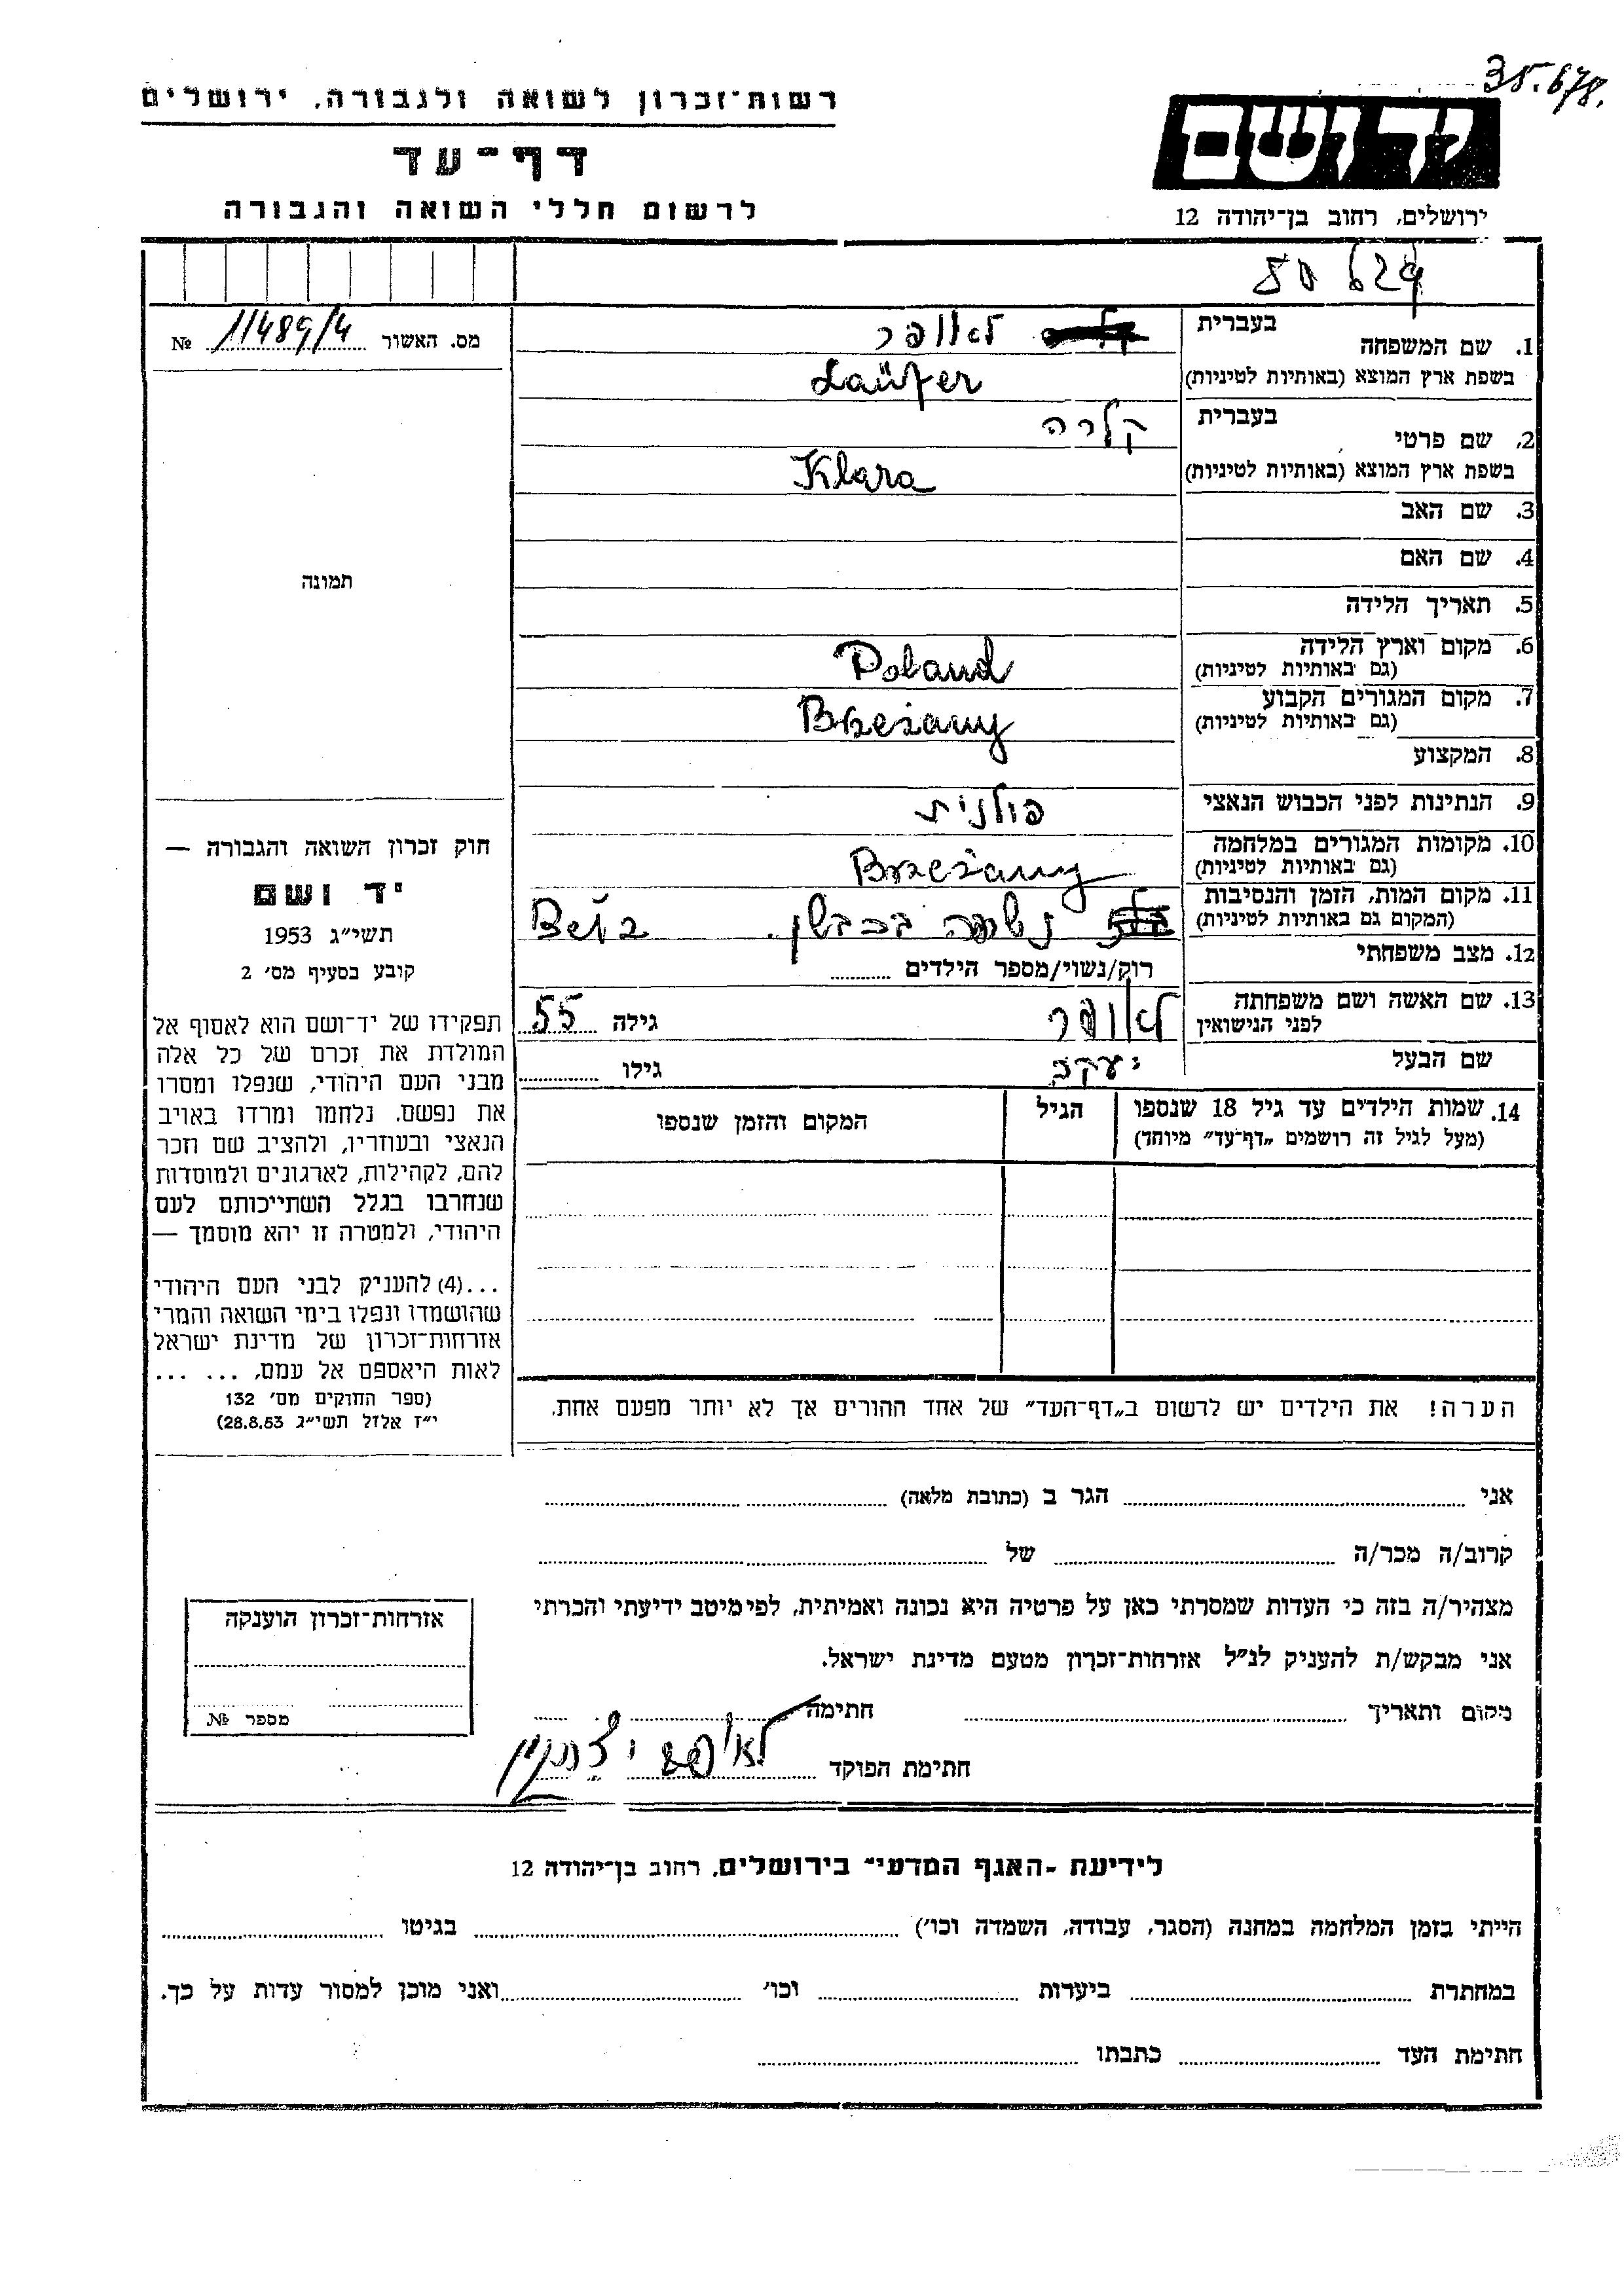 35.678.
רשות־זכרון לשואה ולגבורה, ירושלים
יד ושם
דף־עד
לרשום חללי השואה והגבורה
ירושלים, רחוב בן־יהודה 12
מס. האשור 11489/4 №
1. שם המשפחה בעברית לאופר
בשפת ארץ המוצא (באותיות לטיניות) Laüfer
2. שם פרטי בעברית קלרה
בשפת ארץ המוצא (באותיות לטיניות) Klara
3. שם האב
4. שם האם
5. תאריך הלידה
6. מקום וארץ הלידה Poland
(גם באותיות לטיניות)
7. מקום המגורים הקבוע Brzeżany
(גם באותיות לטיניות)
8. המקצוע
9. הנתינות לפני הכבוש הנאצי פולנית
10. מקומות המגורים במלחמה Brzeżany
(גם באותיות לטיניות)
11. מקום המות, הזמן והנסיבות
(המקום גם באותיות לטיניות) בכבשן.
12. מצב משפחתי רוק/נשוי/מספר הילדים
13. שם האשה ושם משפחתה לאופר גילה 55
לפני הנישואין
שם הבעל יעקב גילו
14. שמות הילדים עד גיל 18 שנספו הגיל המקום והזמן שנספו
(מעל לגיל זה רושמים „דף־עד״ מיוחד)
הערה! את הילדים יש לרשום ב„דף־העד״ של אחד ההורים אך לא יותר מפעם אחת.
תמונה
חוק זכרון השואה והגבורה —
יד ושם
תשי״ג 1953
קובע בסעיף מס׳ 2
תפקידו של יד־ושם הוא לאסוף אל
המולדת את זכרם של כל אלה
מבני העם היהודי, שנפלו ומסרו
את נפשם, נלחמו ומרדו באויב
הנאצי ובעוזריו, ולהציב שם וזכר
להם, לקהילות, לארגונים ולמוסדות
שנחרבו בגלל השתייכותם לעם
היהודי, ולמטרה זו יהא מוסמך —
...(4) להעניק לבני העם היהודי
שהושמדו ונפלו בימי השואה והמרי
אזרחות־זכרון של מדינת ישראל
לאות היאספם אל עמם, ... ...
(ספר החוקים מס׳ 132
י״ז אלול תשי״ג 28.8.53)
אני הגר ב (כתובת מלאה)
קרוב/ה מכר/ה של
מצהיר/ה בזה כי העדות שמסרתי כאן על פרטיה היא נכונה ואמיתית, לפי מיטב ידיעתי והכרתי
אני מבקש/ת להעניק לנ״ל אזרחות־זכרון מטעם מדינת ישראל.
מקום ותאריך חתימה
חתימת הפוקד
אזרחות־זכרון הוענקה
מספר №
לידיעת ־האגף המדעי־ בירושלים, רחוב בן־יהודה 12
הייתי בזמן המלחמה במחנה (הסגר, עבודה, השמדה וכו׳) בגיטו
במחתרת ביערות וכו׳ ואני מוכן למסור עדות על כך.
חתימת העד כתבתו